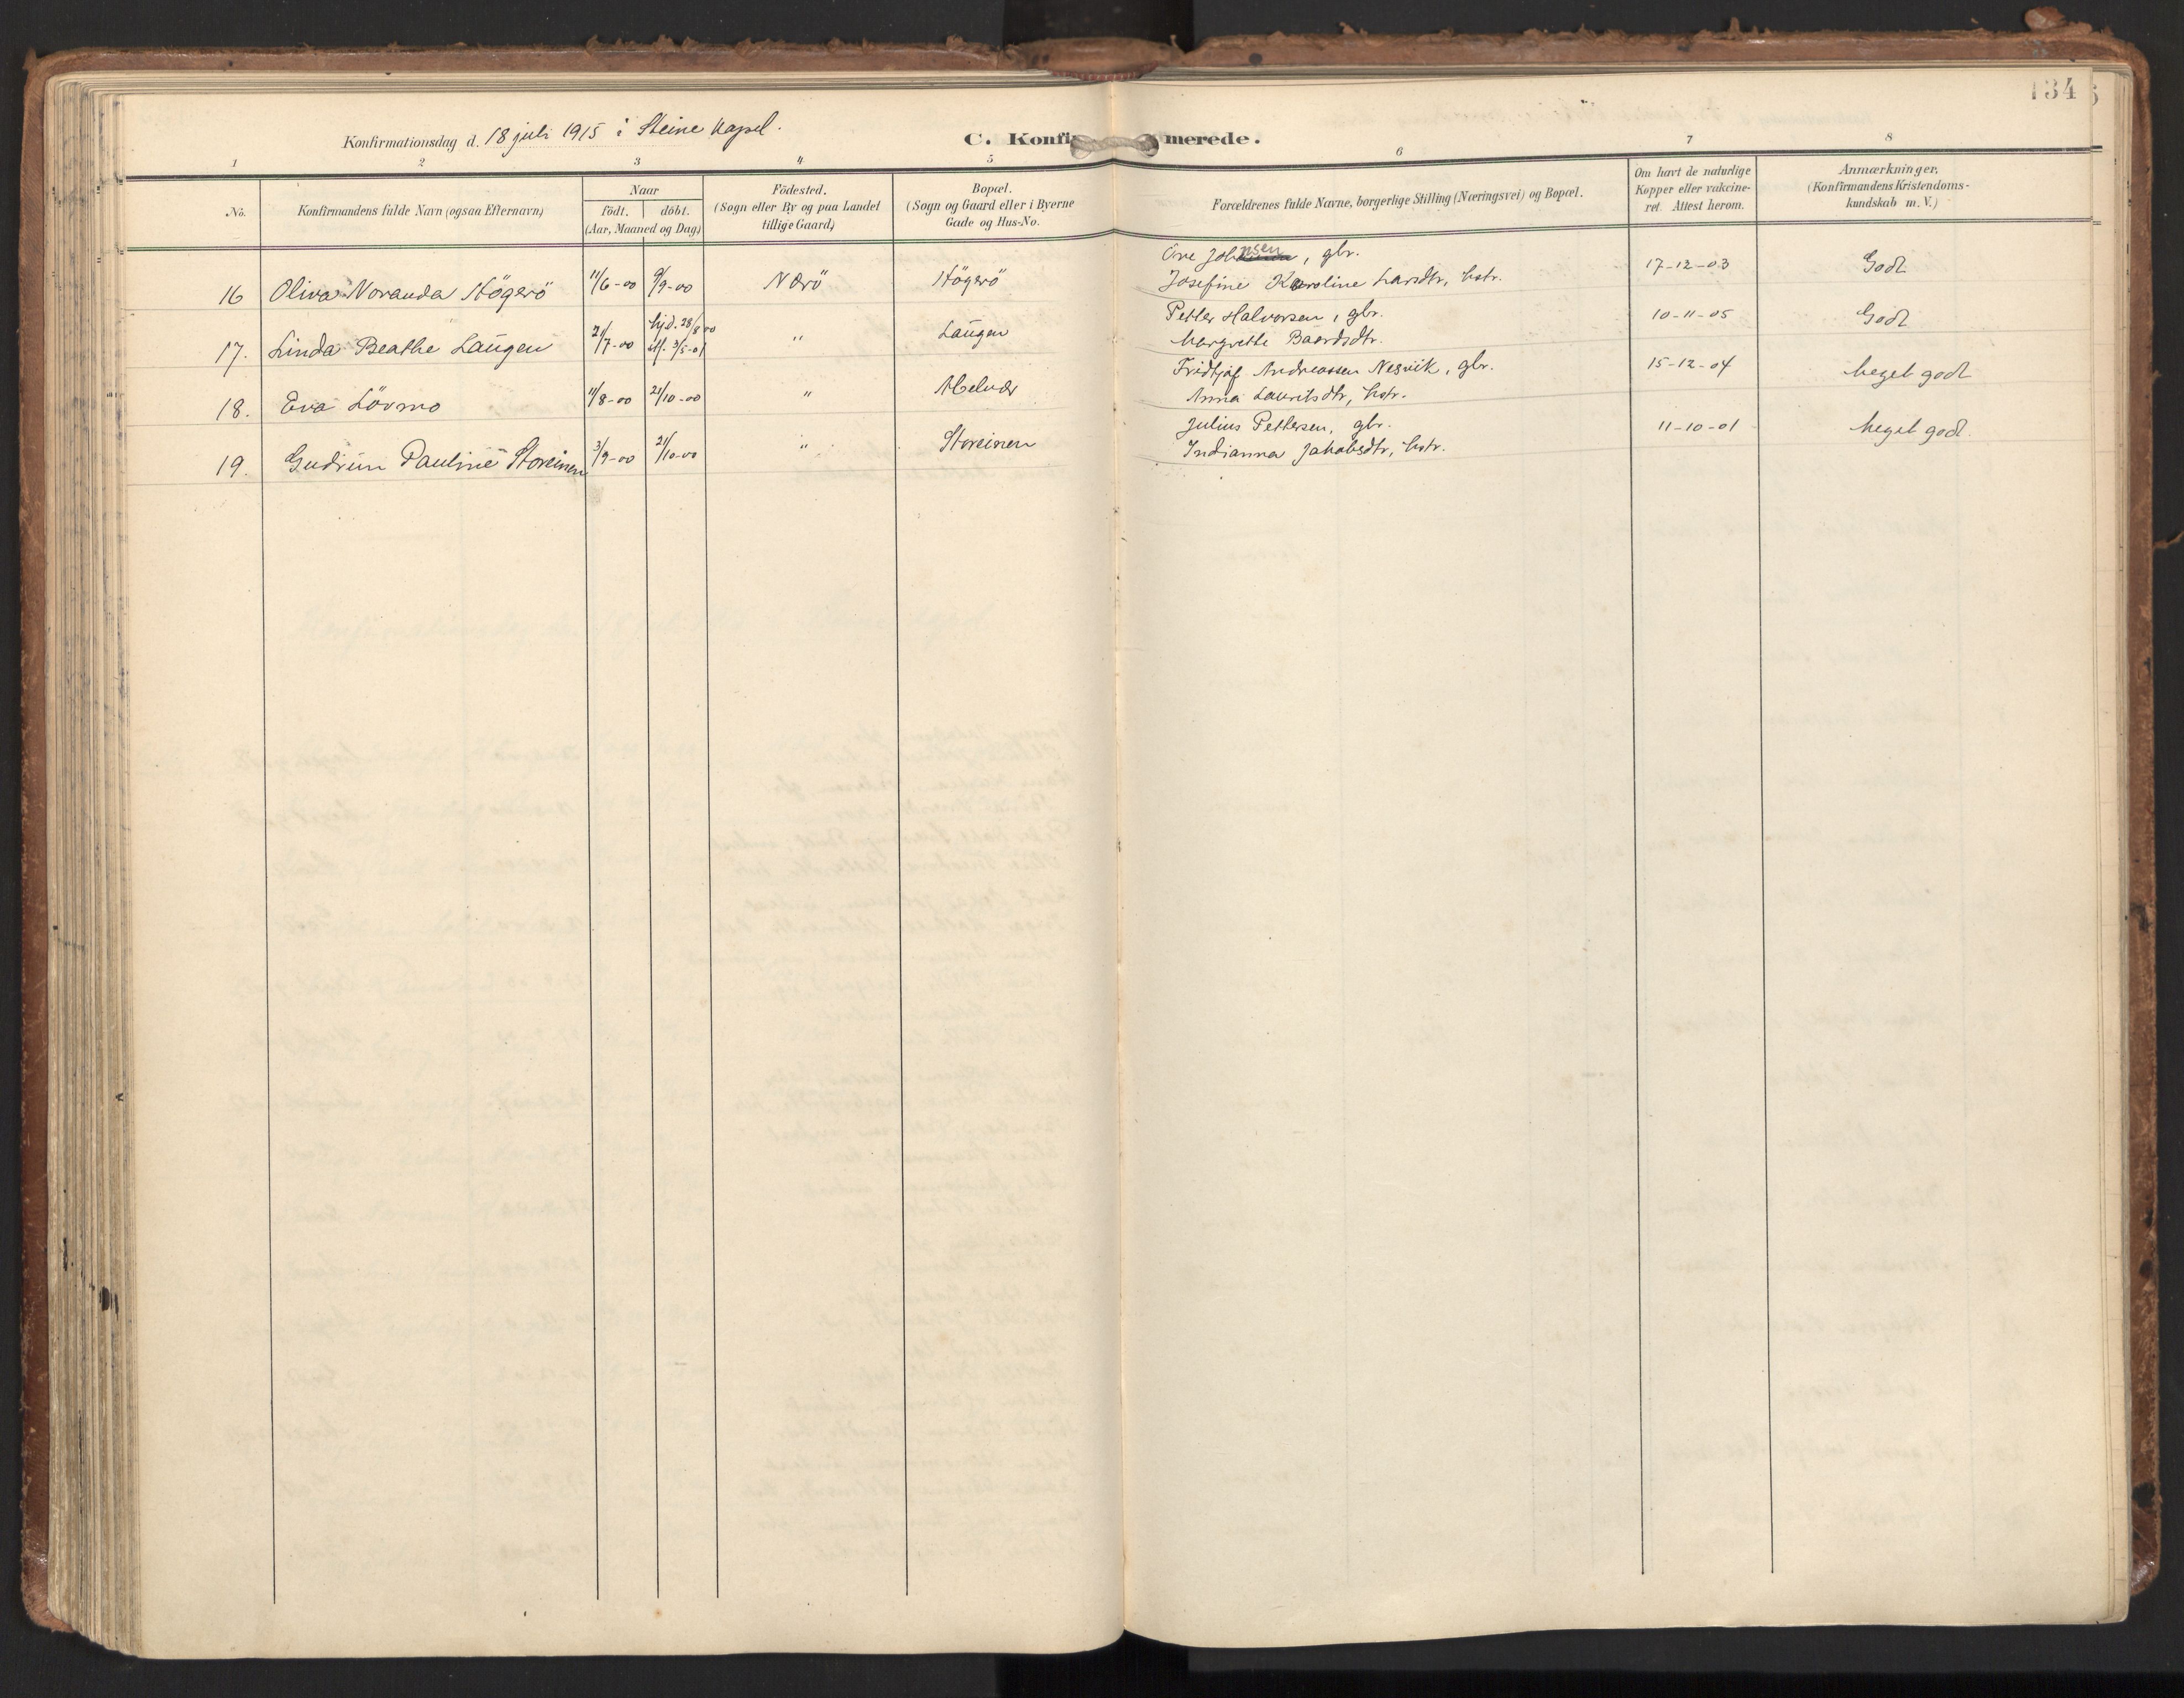 134
Konfirmationsdag d. 18 juli 1915 i Steine Kapel.
C. Konfirmerede.
1 2 3 4 5 6 7 8
No.
Konfirmandens fulde Navn (ogsaa Efternavn)
Naar
födt. | döbt.
(Aar, Maaned og Dag)
Födested.
(Sogn eller By og paa Landet
tillige Gaard)
Bopæl.
(Sogn og Gaard eller i Byerne
Gade og Hus-No.
Forældrenes fulde Navne, borgerlige Stilling (Næringsvei) og Bopæl.
Om havt de naturlige
Kopper eller vakcine-
ret. Attest herom.
Anmærkninger,
(Konfirmandens Kristendoms-
kundskab m. V.)
16 Oliva Noranda Högerö 11/6-00 9/9-00 Nærö Högerö Ove Johnsen, gbr. 17-12-03 Godt
Josefine Karoline Larsdtr, hstr.
17. Linda Beathe Laugen 21/7-00 hjd. 28/8 00 Laugen Petter Halvorsen, gbr. 10-11-05 Godt
st. 3/5-01 Margrethe Baardsdtr.
18. Eva Lövmo 11/8-00 21/10-00 " Abelvær Fridtjof Andreassen Nesvik, gbr. 15-12-04 Meget godt
Anna Lauritsdtr, hstr.
19. Gudrun Pauline Storeinen 3/9-00 21/10-00 " Storeinen Julius Pettersen, gbr. 11-10-01 Meget godt.
Indianna Jakobsdtr, hstr.